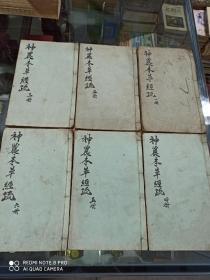 神農本草經疏 一册
神農本草經疏 二册
神農本草經疏 三册
神農本草經疏 四册
神農本草經疏 五册
神農本草經疏 六册
REDMI NOTE 8 PRO
AI QUAD CAMERA